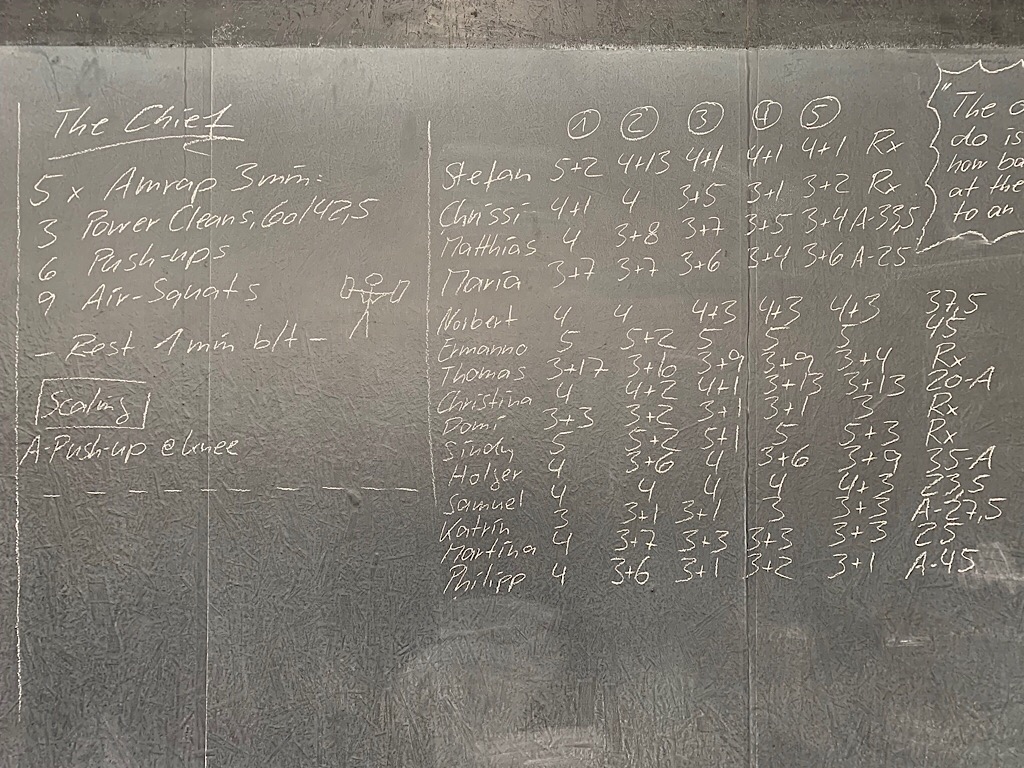 The Chief
5 x Amrap 3min:
3 Power Cleans, 60/42,5
6 Push-ups
9 Air-Squats
- Rest 1min b/t -
Scaling
A-Push-up @ knee
① ② ③ ④ ⑤
Stefan 5+2 4+13 4+1 4+1 4+1 Rx
Chrissi 4+1 4 3+5 3+1 3+2 Rx
Matthias 4 3+8 3+7 3+5 3+4 A-33,5
Maria 3+7 3+7 3+6 3+4 3+6 A-25
Norbert 4 4 4+3 4+3 4+3 37,5
Ermanno 5 5+2 5 5 5 45
Thomas 3+17 3+6 3+9 3+9 3+4 Rx
Christina 4 4+2 4+1 3+13 3+13 20-A
Domi 3+3 3+2 3+1 3+1 3 Rx
Sindy 5 5+2 5+1 5 5+3 Rx
Holger 4 3+6 4 3+6 3+9 35-A
Samuel 4 4 4 4 4+3 23,5
Katrin 3 3+1 3+1 3 3+3 A-27,5
Martina 4 3+7 3+3 3+3 3+3 25
Philipp 4 3+6 3+1 3+2 3+1 A-45
"The
do is
how
at the
to an